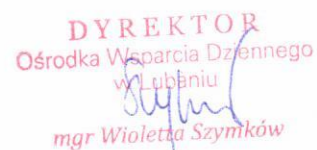 DYREKTOR
Ośrodka Wsparcia Dziennego
w Lubaniu
mgr Wioletta Szymków